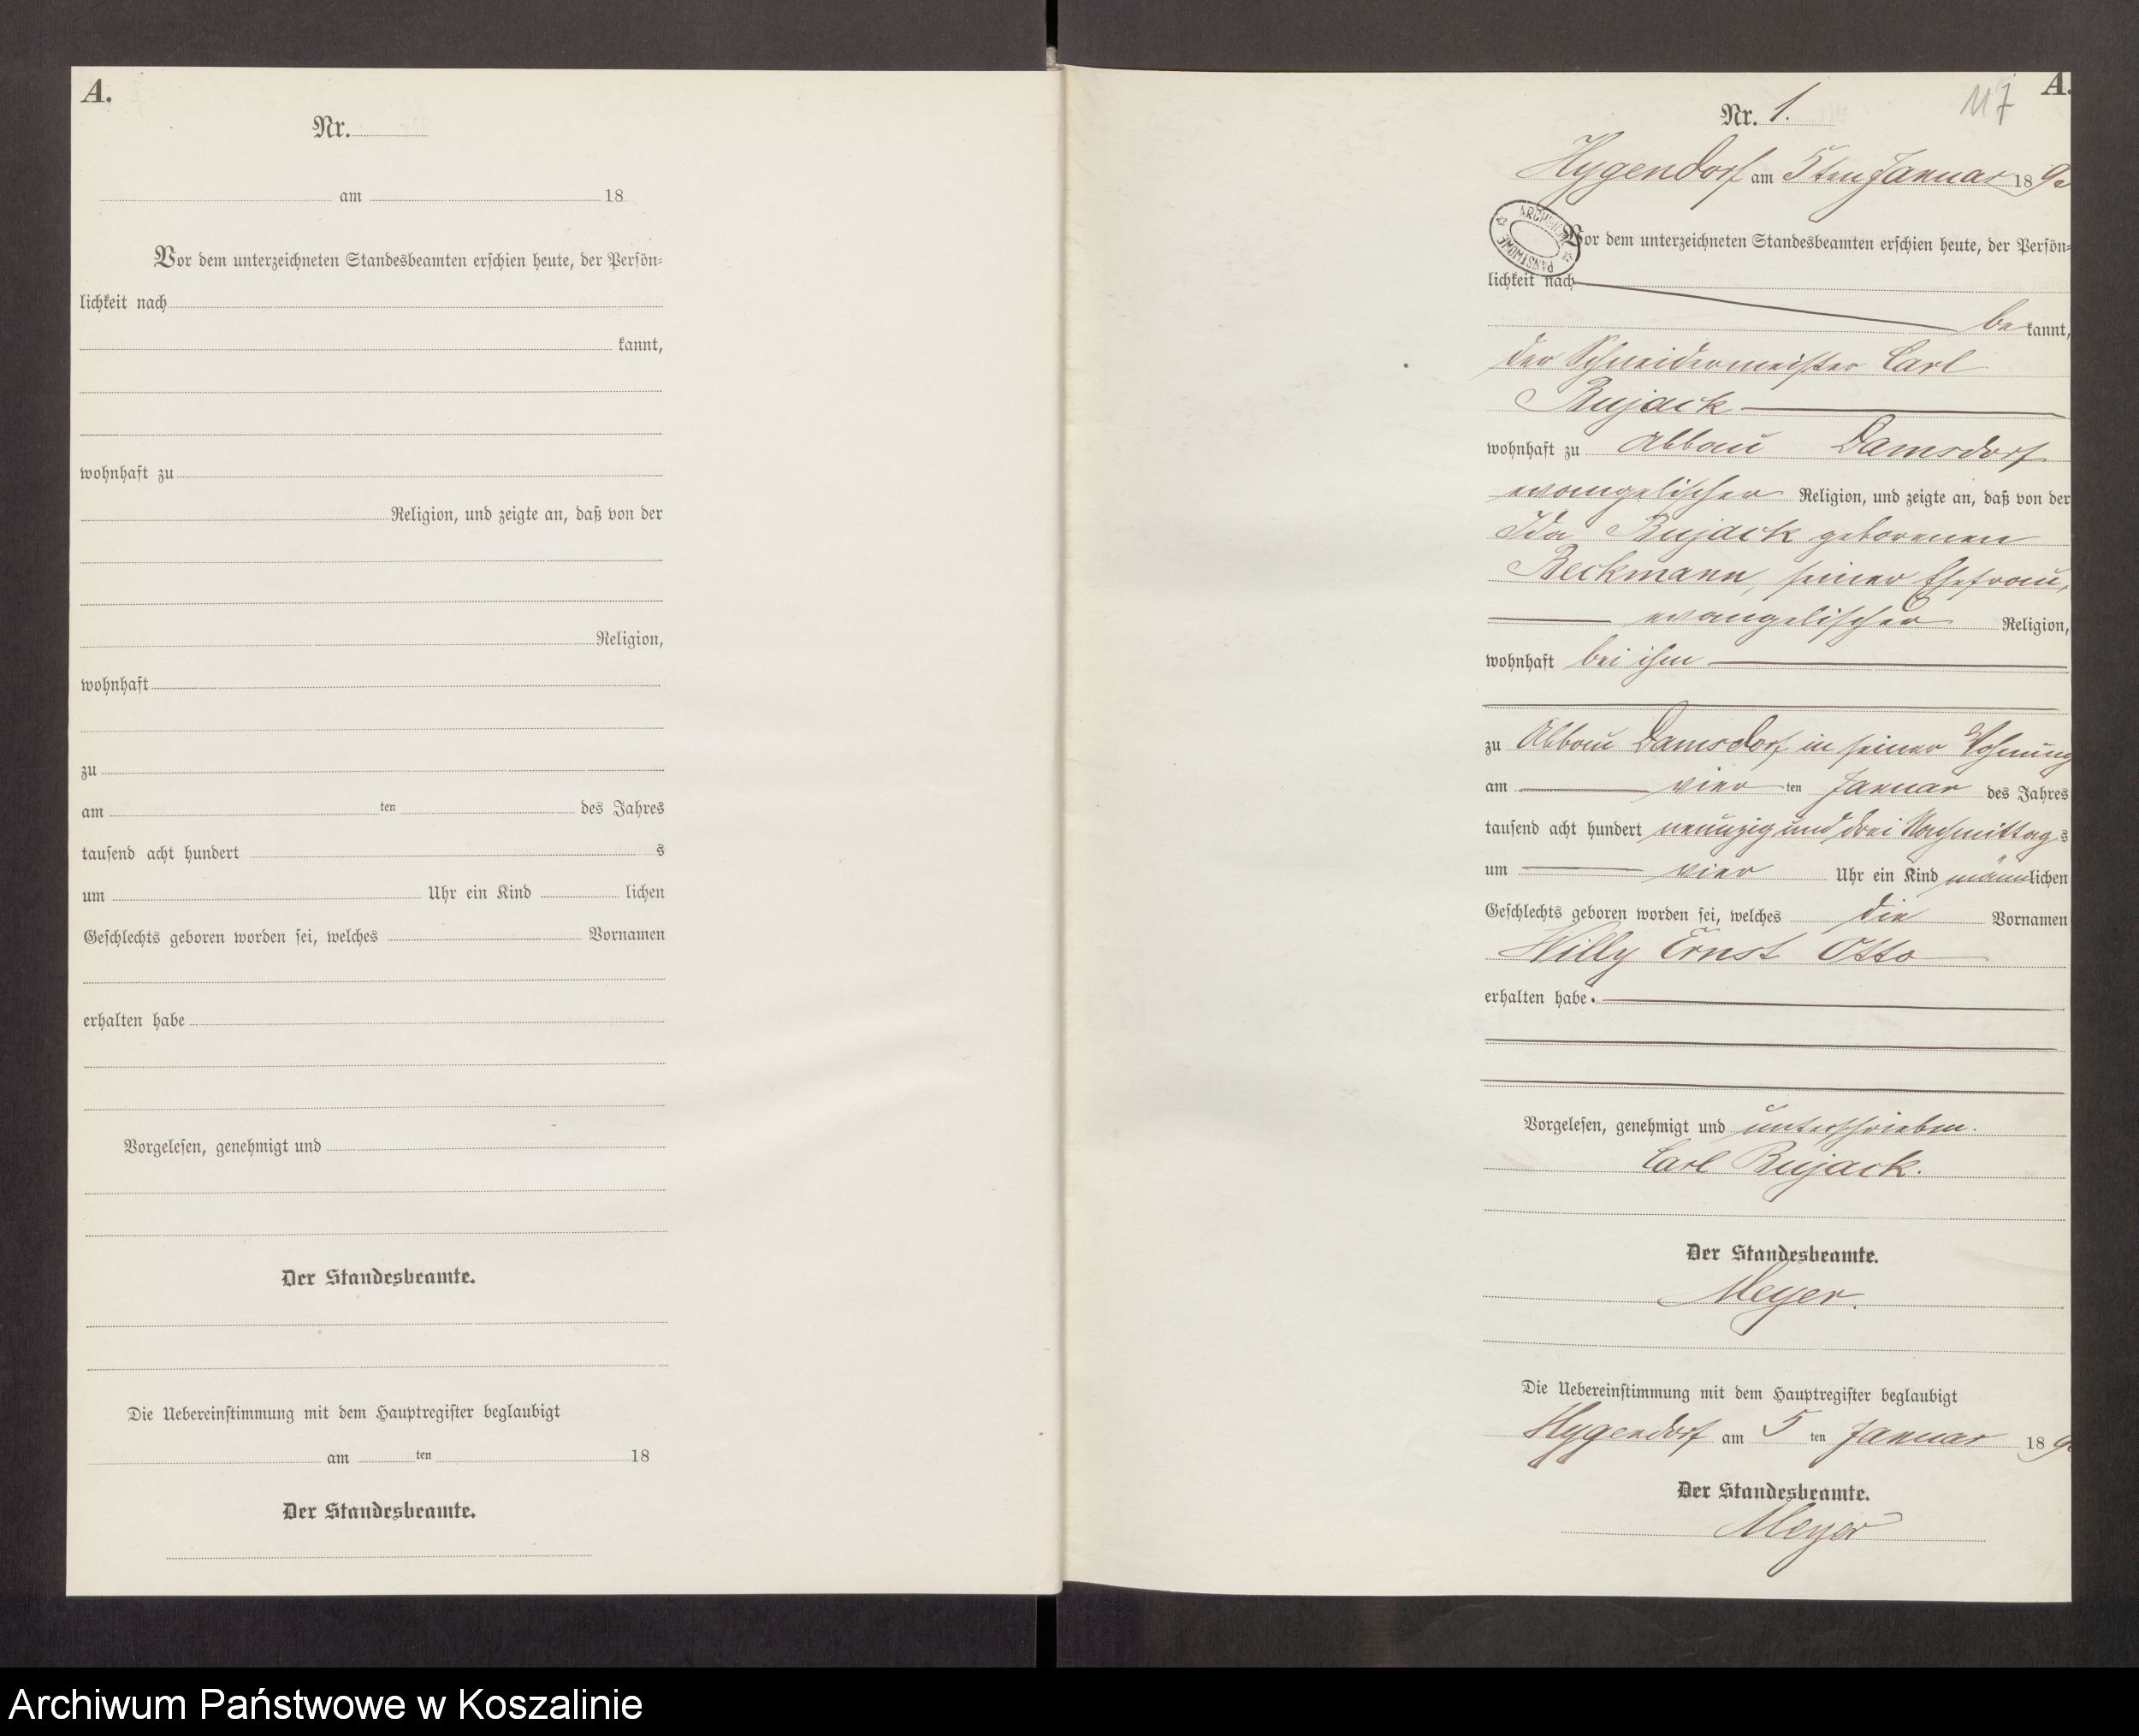 A.
Nr.
am 18
Vor dem unterzeichneten Standesbeamten erschien heute, der Persön-
lichkeit nach
kannt,
wohnhaft zu
Religion, und zeigte an, daß von der
Religion,
wohnhaft
zu
am ten des Jahres
tausend acht hundert s
um Uhr ein Kind lichen
Geschlechts geboren worden sei, welches Vornamen
erhalten habe
Vorgelesen, genehmigt und
Der Standesbeamte.
Die Uebereinstimmung mit dem Hauptregister beglaubigt
am ten 18
Der Standesbeamte.
A.
117
Nr. 1.
Hygendorf am 5ten Januar 189
Vor dem unterzeichneten Standesbeamten erschien heute, der Persön-
lichkeit nach
bekannt,
der Schneidermeister Carl
Bujack
wohnhaft zu Abbau Damsdorf
evangelischer Religion, und zeigte an, daß von der
Ida Bujack geborenen
Beckmann, seiner Ehefrau,
evangelischer Religion,
wohnhaft bei ihm
zu Abbau Damsdorf in seiner Wohnung
am vier ten Januar des Jahres
tausend acht hundert neunzig und drei Nachmittags
um vier Uhr ein Kind männlichen
Geschlechts geboren worden sei, welches die Vornamen
Willy Ernst Otto
erhalten habe.
Vorgelesen, genehmigt und unterschrieben.
Carl Bujack.
Der Standesbeamte.
Meyer.
Die Uebereinstimmung mit dem Hauptregister beglaubigt
Hygendorf am 5 ten Januar 189
Der Standesbeamte.
Meyer
Archiwum Państwowe w Koszalinie